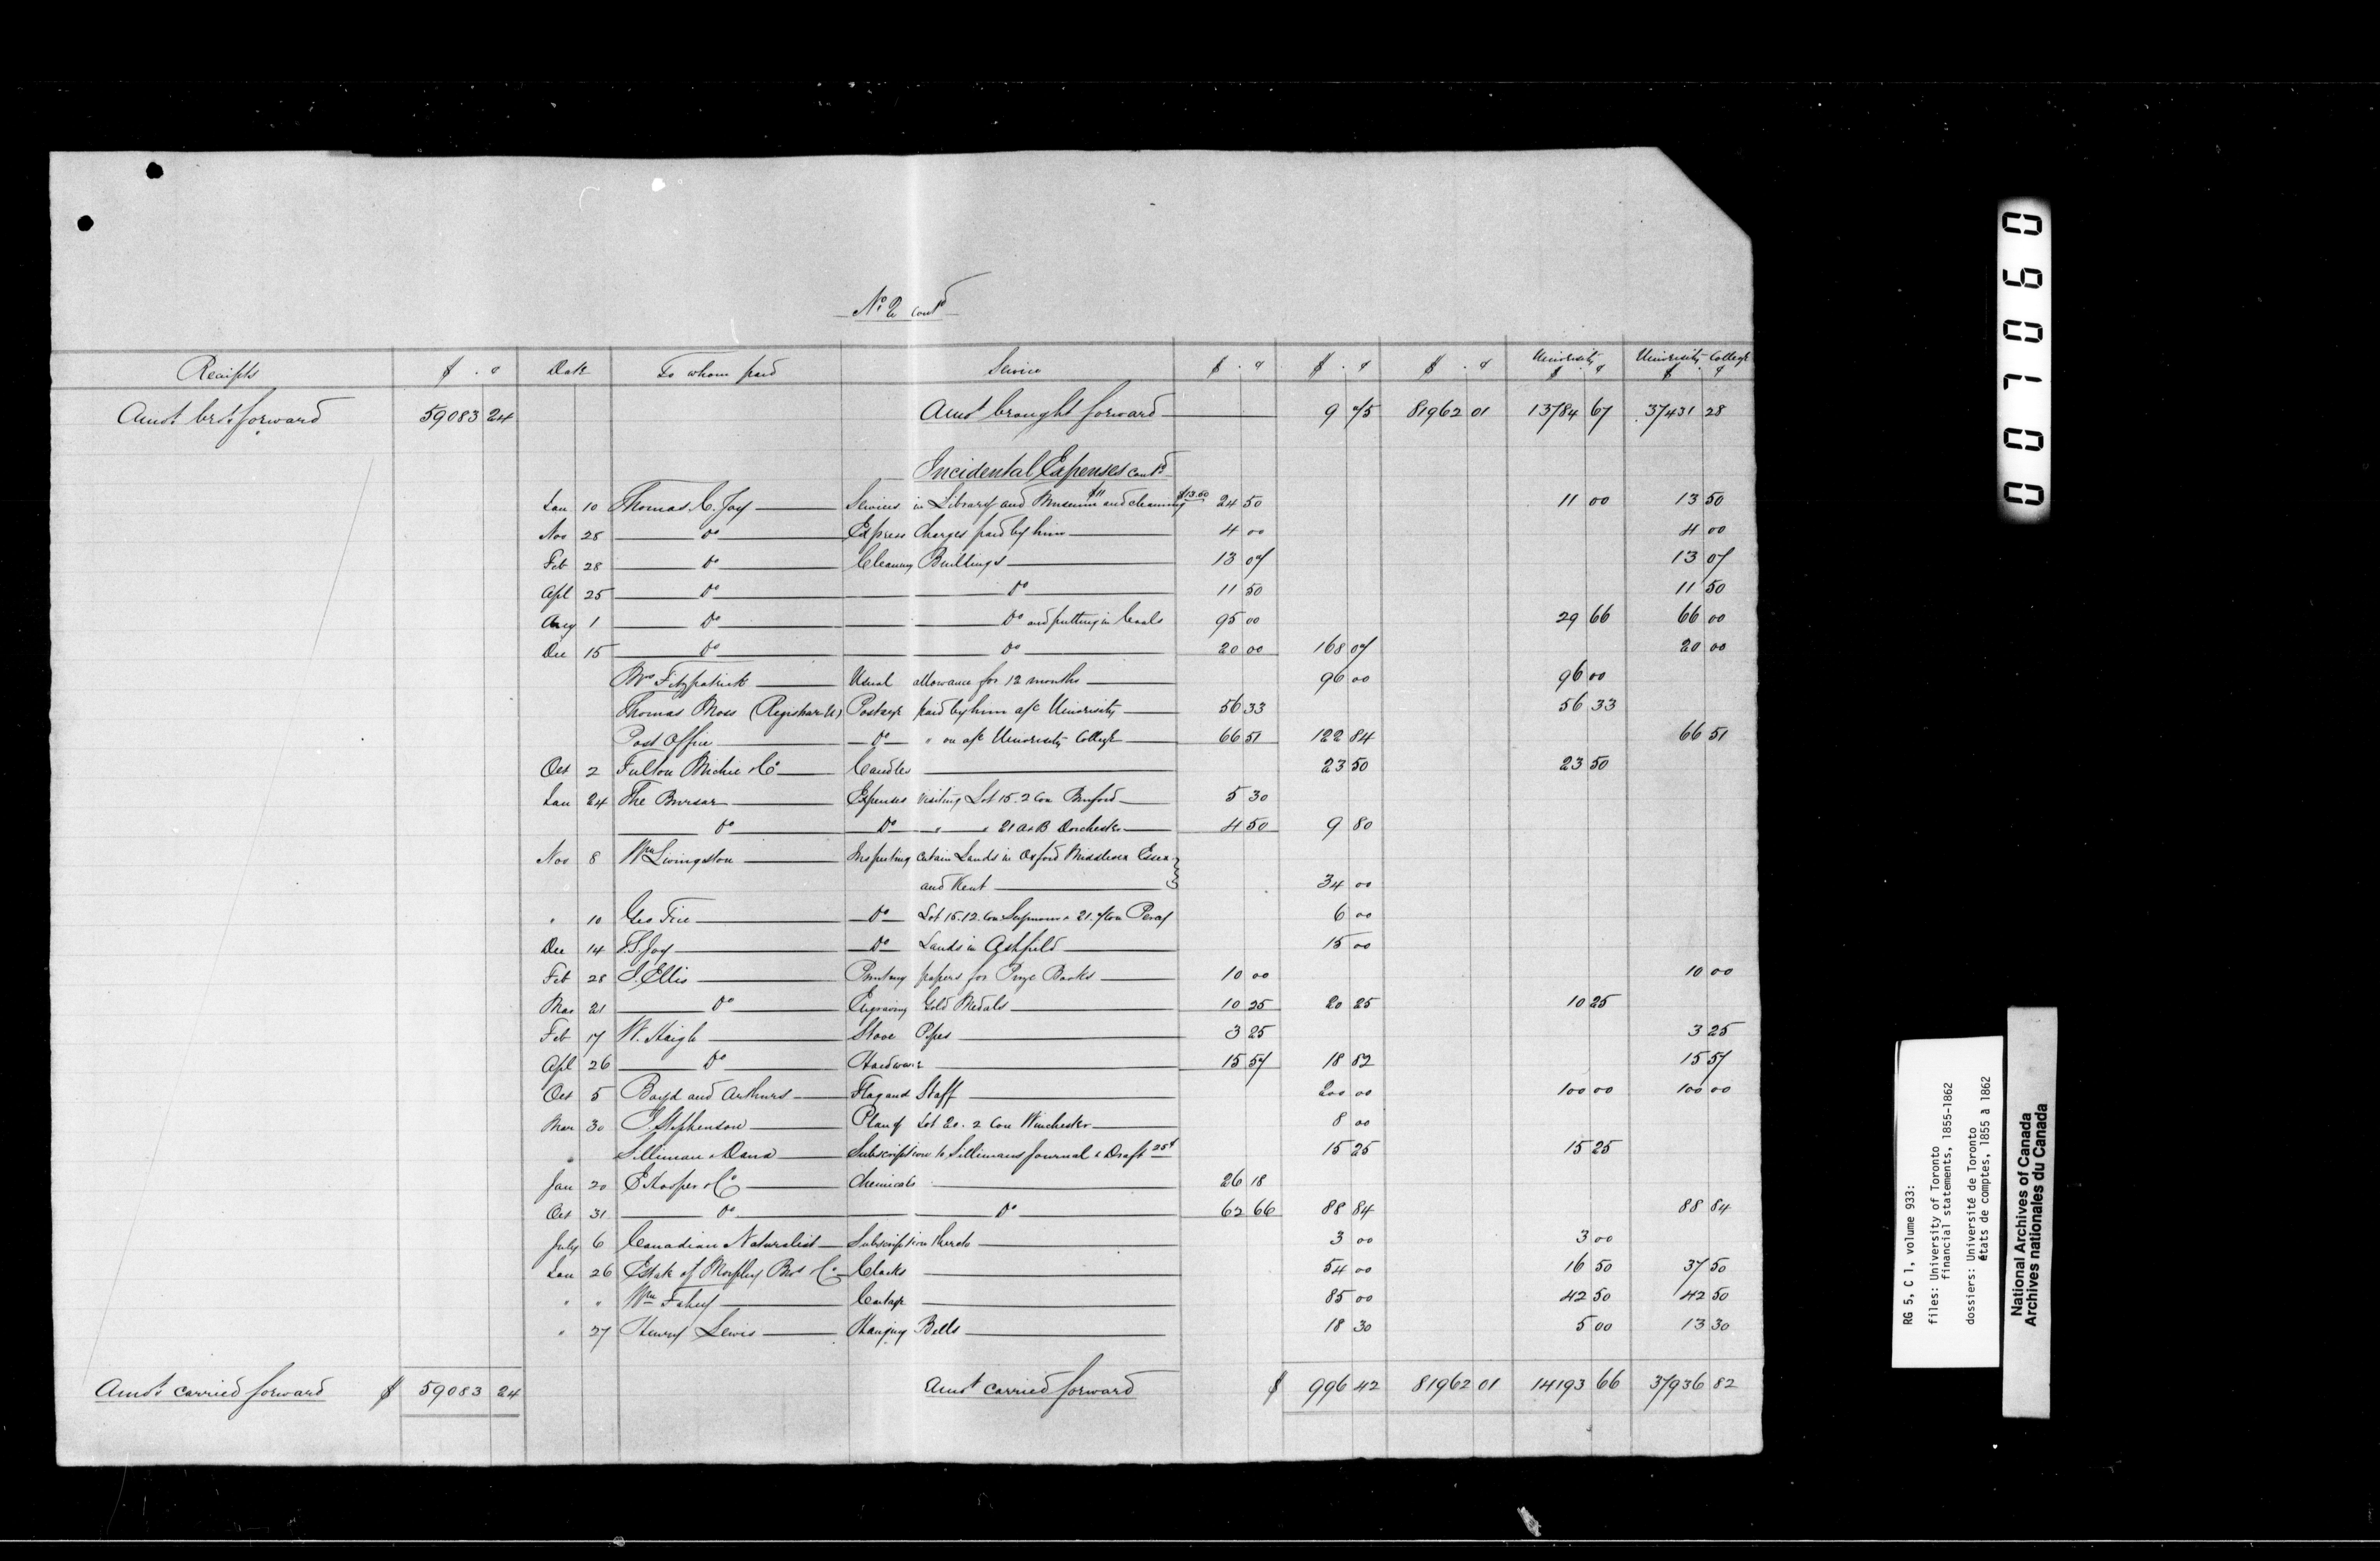 No 2 contd
Receipts $ . c Date To whom paid Service $ . c $ . c $ . c University $ . c University College $ . c
Amot brot forward 59083 24 Amot brought forward 9 75 81962 01 13784 67 37431 28
Incidental Expenses contd
Jan 10 Thomas C. Joy Services in Library and Museum $11 and cleaning $13.50 24 50 11 00 13 50
Nov 28 Do Express Charges paid by him 4 00 4 00
Feb 28 Do Cleaning Buildings 13 07 13 07
Apl 25 Do Do 11 50 11 50
Aug 1 Do Do and putting in Coals 95 00 29 66 66 00
Dec 15 Do Do 20 00 168 07 20 00
Mrs Fitzpatrick Usual allowance for 12 months 96 00 96 00
Thomas Moss (Registrar U) Postage paid by him a/c University 56 33 56 33
Post Office Do " on a/c University College 66 51 122 84 66 51
Oct 2 Fulton Michie & Co Candles 23 50 23 50
Jan 24 The Bursar Expenses visiting Lot 15. 2 Con Burford 5 30
Do Do " " 21 A & B Dorchester 4 50 9 80
Nov 8 Wm Livingston Inspecting certain Lands in Oxford Middlesex Essex
and Kent 34 00
" 10 Geo Tice Do Lot 15. 12. Con Seymour & 21. 7 Con Percy 6 00
Dec 14 Joy Do Lands in Ashfield 15 00
Feb 28 J. Ellis Printing papers for Prize Books 10 00 10 00
Mar 21 Do Engraving Gold Medals 10 25 20 25 10 25
Feb 17 W. Haigh Stove Pipes 3 25 3 25
Apl 26 Do Hardware 15 57 18 82 15 57
Oct 5 Boyd and Arthurs Flag and Staff 200 00 100 00 100 00
Mar 30 Stephenson Plan of Lot 20. 2 Con Winchester 8 00
" Silliman & Dana Subscription to Sillimans Journal & Draft 25c 15 25 15 25
Jan 20 E Hooper & Co Chemicals 26 18
Oct 31 Do Do 62 66 88 84 88 84
July 6 Canadian Naturalist Subscription thereto 3 00 3 00
Jan 26 Estate of Morphy Bros & Co Clocks 54 00 16 50 37 50
" " Wm Fahey Cartage 85 00 42 50 42 50
" 27 Henry Lewis Hanging Bells 18 30 5 00 13 30
Amot carried forward $ 59083 24 Amot carried forward $ 996 42 81962 01 14193 66 37936 82
001060
RG 5, C 1, volume 933:
files: University of Toronto
financial statements, 1855-1862
dossiers: Université de Toronto
états de comptes, 1855 à 1862
National Archives of Canada
Archives nationales du Canada